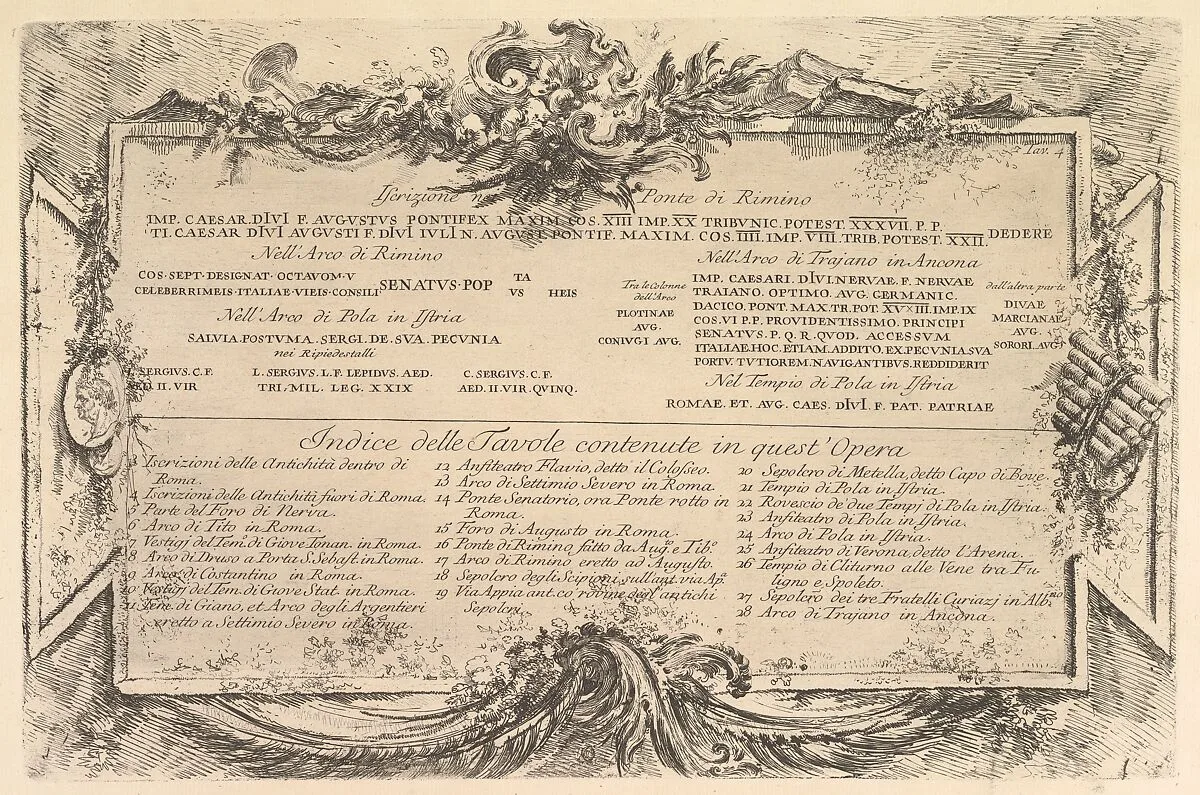 Tav. 4
Iscrizione Ponte di Rimino
IMP. CAESAR. DIVI F. AVGVSTVS PONTIFEX MAXIM. COS. XIII IMP. XX TRIBVNIC. POTEST. XXXVII. P. P.
TI. CAESAR DIVI AVGVSTI F. DIVI IVLI N. AVGVST. PONTIF. MAXIM. COS. IIII. IMP. VIII. TRIB. POTEST. XXII. DEDERE
Nell'Arco di Rimino
COS · SEPT · DESIGNAT · OCTAVOM · V
CELEBERRIMEIS · ITALIAE · VIEIS · CONSILI
SENATVS · POP
TA
VS HEIS
Nell'Arco di Pola in Istria
SALVIA. POSTVMA. SERGI. DE. SVA. PECVNIA
nei Ripiedestalli
SERGIVS. C. F.
AED. II. VIR
L. SERGIVS. L. F. LEPIDVS. AED.
TRI. MIL. LEG. XXIX
C. SERGIVS. C. F.
AED. II. VIR. QVINQ.
Nell'Arco di Trajano in Ancona
Tra le Colonne
dell'Arco
PLOTINAE
AVG.
CONIVGI AVG.
IMP. CAESARI. DIVI. NERVAE. F. NERVAE
TRAIANO. OPTIMO. AVG. GERMANIC.
DACICO. PONT. MAX. TR. POT. XVXIII. IMP. IX
COS. VI P. P. PROVIDENTISSIMO. PRINCIPI
SENATVS. P. Q. R. QVOD. ACCESSVM
ITALIAE. HOC. ETIAM. ADDITO. EX. PECVNIA. SVA
PORTV. TVTIOREM. NAVIGANTIBVS. REDDIDERIT
dall'altra parte
DIVAE
MARCIANAE
AVG.
SORORI. AVG
Nel Tempio di Pola in Istria
ROMAE. ET. AVG. CAES. DIVI. F. PAT. PATRIAE
Indice delle Tavole contenute in quest'Opera
3 Iscrizioni delle Antichità dentro di
Roma.
4 Iscrizioni delle Antichità fuori di Roma.
5 Parte del Foro di Nerva.
6 Arco di Tito in Roma.
7 Vestigj del Tem. di Giove Tonan. in Roma.
8 Arco di Druso a Porta S. Sebast. in Roma.
9 Arco di Costantino in Roma.
10 Vestigj del Tem. di Giove Stat. in Roma.
11 Tem. di Giano, et Arco degli Argentieri
eretto a Settimio Severo in Roma.
12 Anfiteatro Flavio, detto il Colosseo.
13 Arco di Settimio Severo in Roma.
14 Ponte Senatorio, ora Ponte rotto in
Roma.
15 Foro di Augusto in Roma.
16 Ponte di Rimino fatto da Aug.to e Tib.o
17 Arco di Rimino eretto ad Augusto.
18 Sepolcro degli Scipioni sull'ant. via Ap.a
19 Via Appia ant. co' rovine degl'antichi
Sepolcri.
20 Sepolcro di Metella, detto Capo di Bove.
21 Tempio di Pola in Istria.
22 Rovescio de' due Tempj di Pola in Istria.
23 Anfiteatro di Pola in Istria.
24 Arco di Pola in Istria.
25 Anfiteatro di Verona, detto l'Arena.
26 Tempio di Cliturno alle Vene tra Fu-
ligno e Spoleto.
27 Sepolcro dei tre Fratelli Curiazj in Albano
28 Arco di Trajano in Ancona.